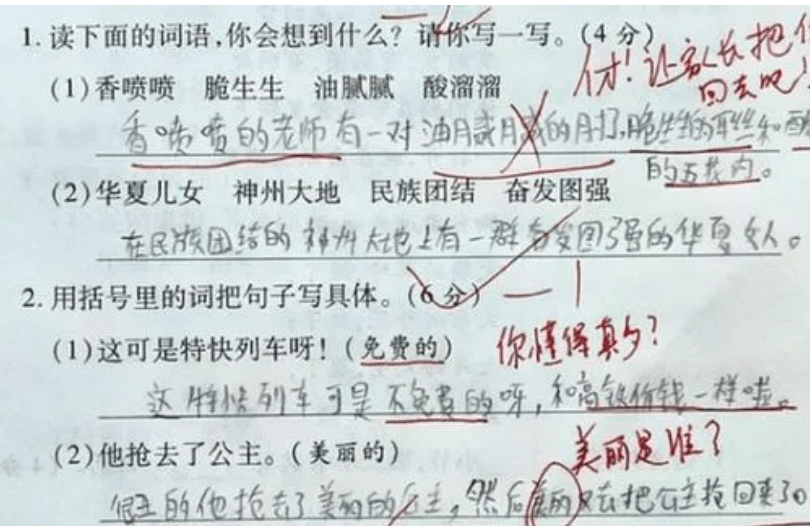 1.读下面的词语,你会想到什么?请你写一写。(4分)
让家长把你
回去吧!
(1)香喷喷 脆生生 油腻腻 酸溜溜
香喷喷的老师有一对油腻腻的 脆生生的耳丝和酸
的五花肉。
(2)华夏儿女 神州大地 民族团结 奋发图强
在民族团结的神州大地上有一群奋发图强的华夏女人。
2.用括号里的词把句子写具体。(6分) — 1
(1)这可是特快列车呀!(免费的)
你懂得真多?
这特快列车可是不免费的呀,和高铁价钱一样啦。
(2)他抢去了公主。(美丽的)
美丽是谁?
的他抢去了美丽的公主,然后美丽又去把公主抢回来了。